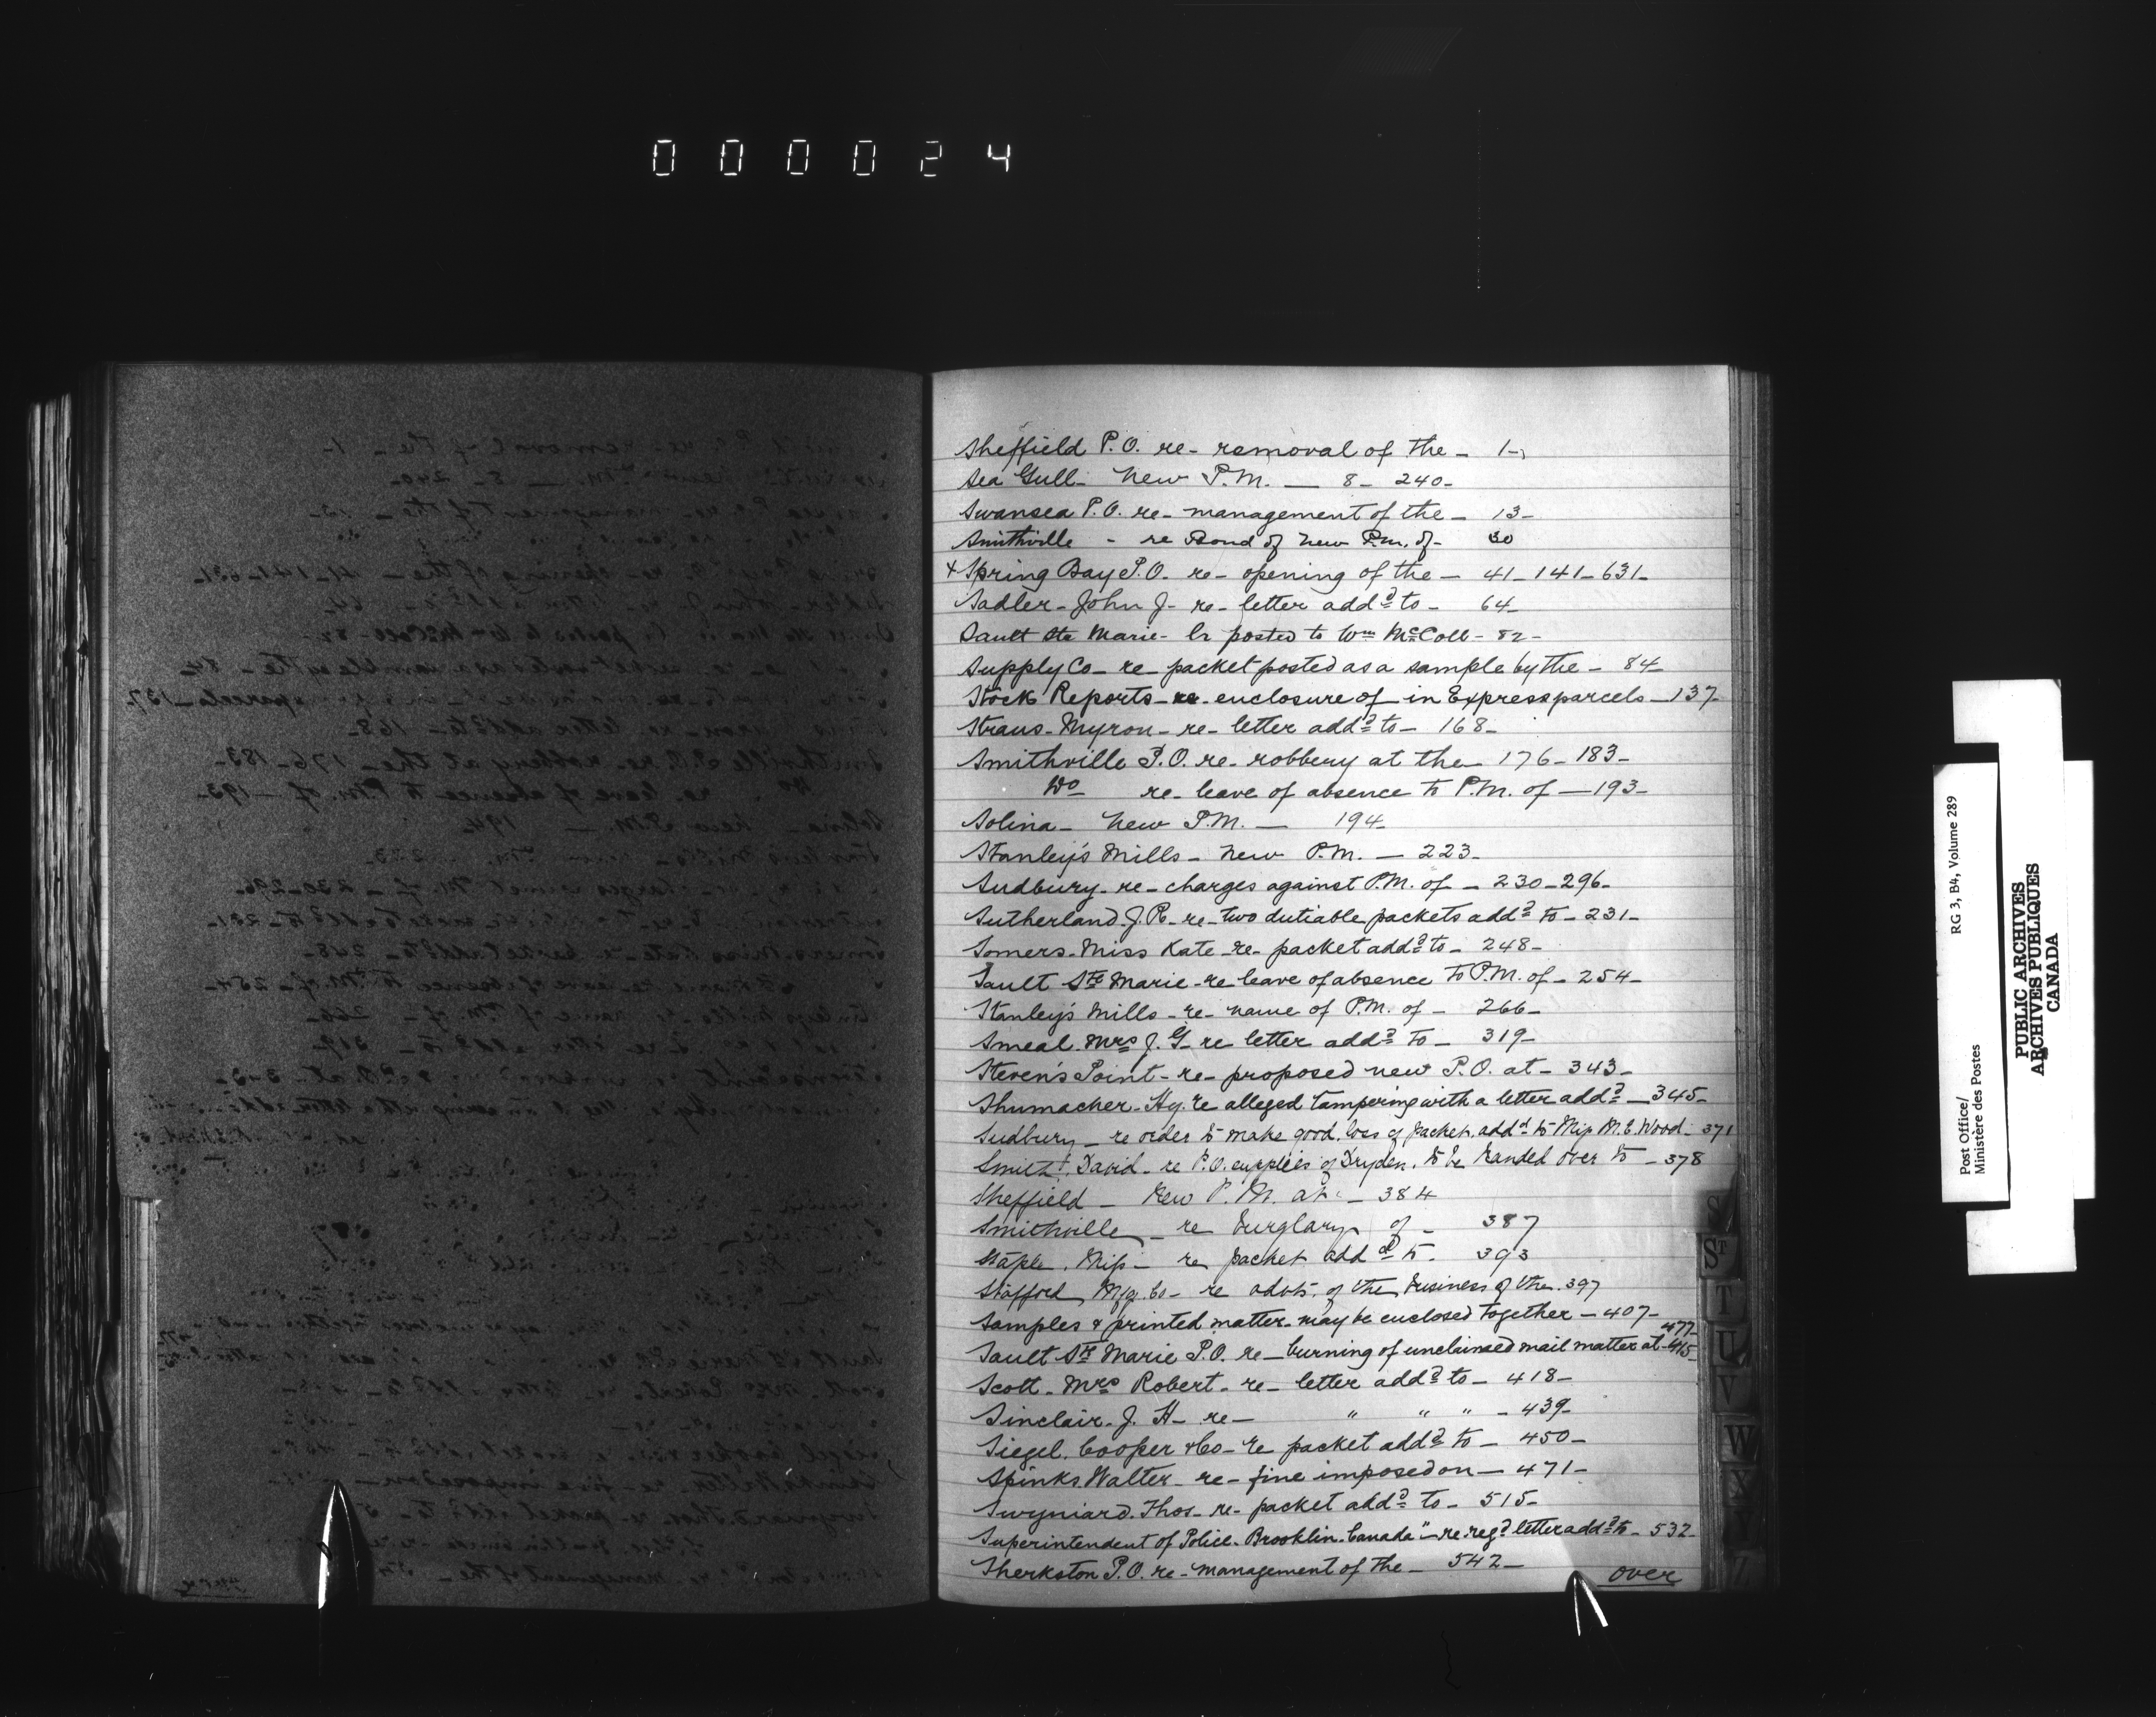 000024
Sheffield P.O. re- removal of the - 1-
Sea Gull- New P.M. — 8- 240-
Swansea P.O. re- management of the - 13-
Smithville - re Bond of New P.M. of- 30
+ Spring Bay P.O. re- opening of the - 41- 141- 631-
Sadler- John J- re- letter addd to- 64-
Sault Ste Marie- lr posted to Wm McColl- 82-
Supply Co- re packet posted as a sample by the - 84-
Stock Reports- re- enclosure of in Express parcels - 137-
Straus- Myron- re- letter addd to- 168-
Smithville P.O. re- robbery at the- 176- 183-
Do re- leave of absence to P.M. of - 193-
Solina- New P.M. - 194-
Stanley's Mills- New P.M. - 223-
Sudbury- re- charges against P.M. of - 230- 296-
Sutherland. J.R. re- two dutiable packets addd to- 231-
Somers- Miss Kate- re- packet addd to- 248-
Sault Ste Marie- re leave of absence to P.M. of- 254-
Stanley's Mills- re- name of P.M. of - 266-
Smeal. Mrs J. G- re letter addd to- 319-
Steven's Point- re- proposed new P.O. at- 343-
Shumacher- Hy. re alleged tampering with a letter addd - 345-
Sudbury - re order to make good loss of packet addd to Miss M.E. Wood- 371
Smith, David- re P.O. supplies of Dryden, to be handed over to - 378
Sheffield - New P.M. at - 384
Smithville - re burglary of - 387
Staple, Miss- re packet addd to- 393
Stafford Mfg. Co- re advts. of the business of the. 397
Samples & printed matter- may be enclosed together - 407-
477-
Sault Ste Marie P.O. re- burning of unclaimed mail matter at- 415-
Scott- Mrs Robert- re- letter addd to- 418-
Sinclair- J. H- re- " " " - 439-
Siegel. Cooper & Co- re packet addd to - 450-
Spinks. Walter- re- fine imposed on - 471-
Swyniard. Thos- re- packet addd to- 515-
Superintendent of Police- Brooklin- Canada"- re- regd letter addd to- 532-
Sherkston P.O. re- management of the - 542-
over
S
ST
T
U
V
W
X
Y
Z
Post Office/ RG 3, B4, Volume 289
Ministère des Postes
PUBLIC ARCHIVES
ARCHIVES PUBLIQUES
CANADA